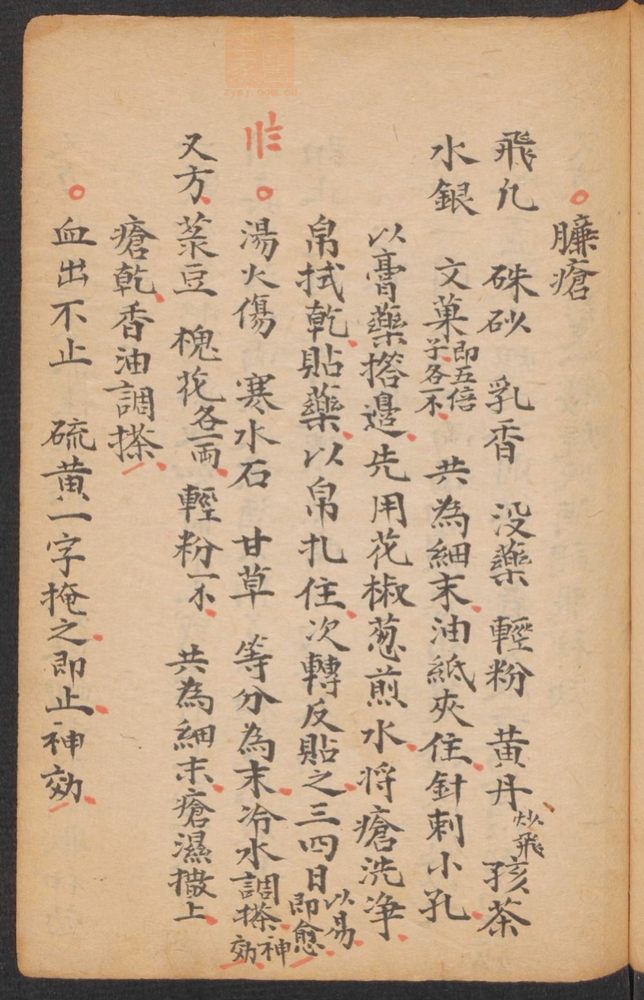 臁瘡
飛凢 硃砂 乳香 没藥 輕粉 黄丹炒飛 孩茶
水銀 文菓即五倍子各一不 共為細末油紙夾住針刺小孔
以膏藥搭邉先用花椒葱煎水将瘡洗净
帛拭乾貼藥以帛扎住次轉反貼之三四日以易即愈
湯火傷 寒水石 甘草 等分為末冷水調搽神効
又方菉豆 槐花各一両 輕粉一不 共為細末瘡濕撒上
瘡乾香油調搽
血出不止 硫黄一字掩之即止神効